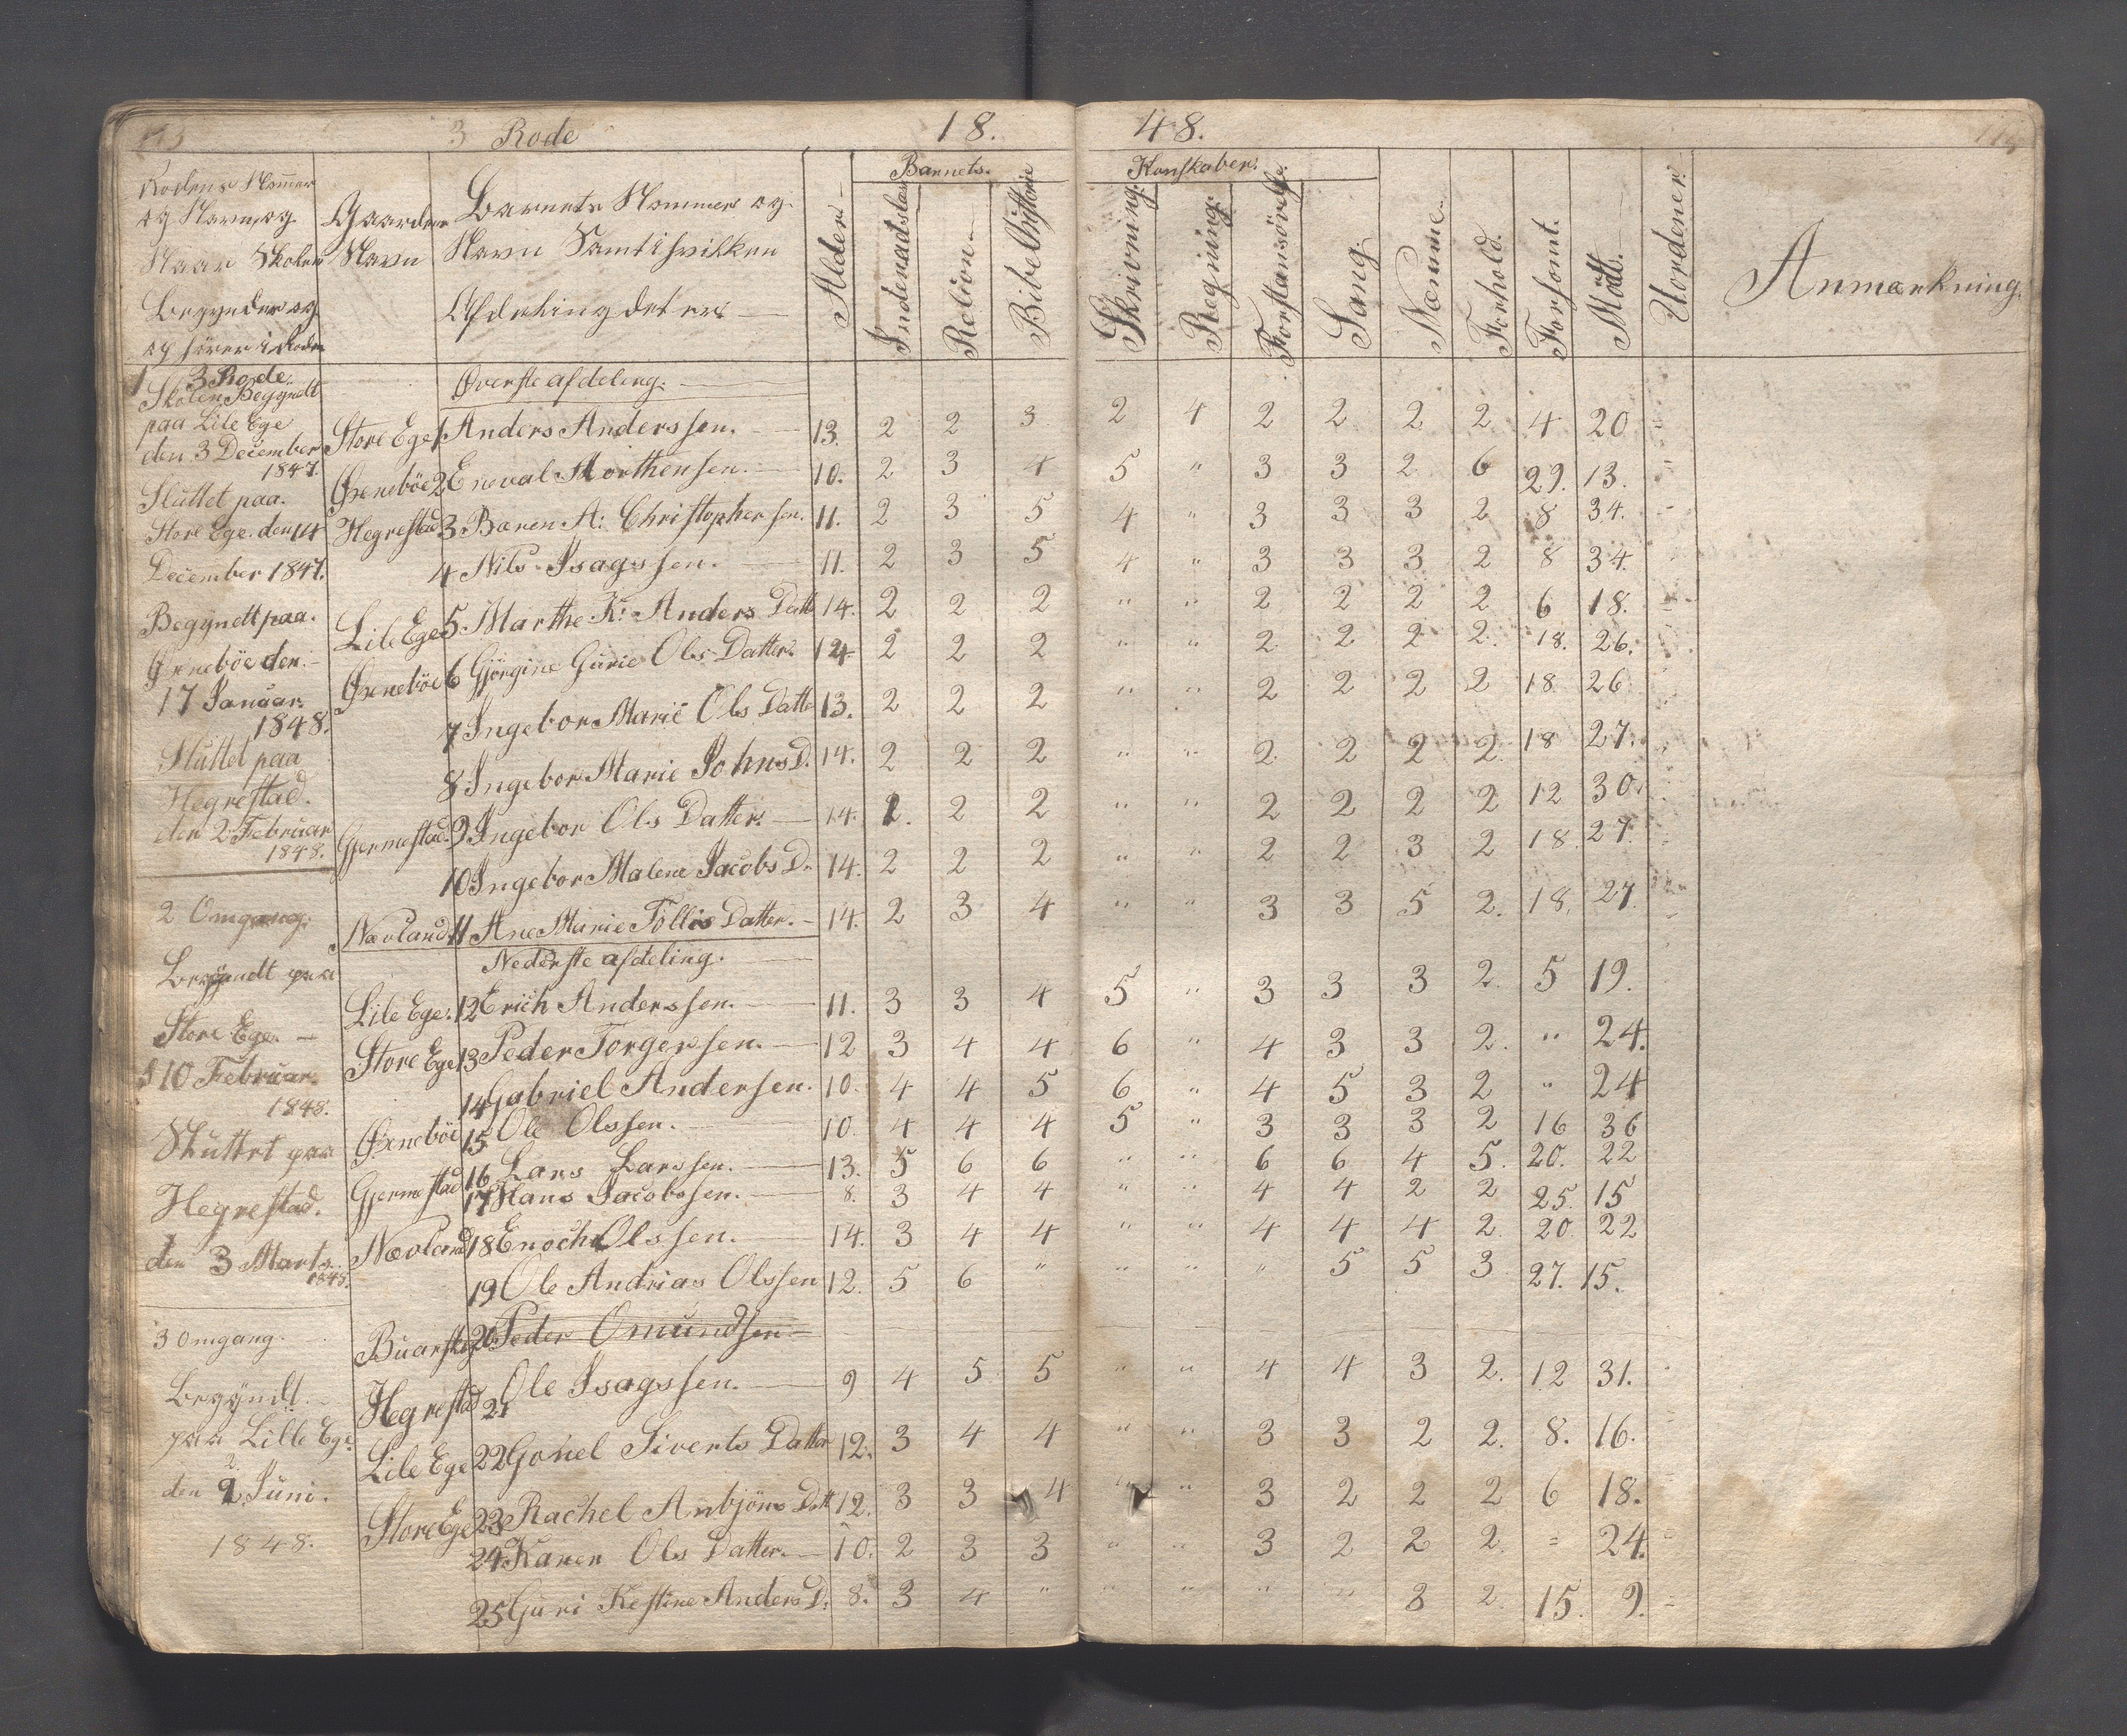 3 Rode 18. 48.
Rodens Nommer og Navn, og Naar Skolen Begynder og ophører i Roden
Gaardens Navn
Barnets Nommer og Navn Samt i hvilken Afdeling det er.
Alder
Barnets. Kunskaber.
Indenadslæs
Religion
Bibel Historie
Skrivning.
Regning.
Forstansøvelse.
Sang.
Næmme.
Forhold.
Forsømt.
Mødt.
Uordener.
Anmærkning.
3 Rode.
Skolen Begyndt
paa Lile Ege
den 3 December
1847.
Sluttet paa.
Store Ege. den 14
December 1847.
Begyndt paa.
Øxneböe den.
17 Januar.
1848.
Sluttet paa
Hegrestad.
den 2 Februar
1848.
2 Omgang.
Begyndt paa
Store Ege. —
d 10 Februar.
1848.
Sluttet paa
Hegrestad.
den 3 Marts.
1848.
3 Omgang.
Begyndt.
paa Lille Ege.
den 2 Juni.
1848.
Øverste afdeling.
Store Ege 1 Anders Anderssen. 13. 2 2 3 2 4 2 2 2 2 4 20
Øxneböe 2 Eneval Morthensen. 10. 2 3 4 5 " 3 3 2 6 29. 13.
Hegrestad 3 Baren A: Christophersen. 11. 2 3 5 4 " 3 3 3 2 8 34.
4 Nils Isagssen. 11. 2 3 5 4 " 3 3 3 2 8 34.
Lile Ege 5 Marthe K: Anders Datt 14. 2 2 2 " " 2 2 2 2 6 18.
Øxneböe 6 Gjørgine Gurie Ols Datter. 14 2 2 2 " " 2 2 2 2. 18. 26.
7 Ingebor Marie Ols Datte 13. 2 2 2 " " 2 2 2 2 18 26
8 Ingebor Marie Johns D. 14. 2 2 2 " " 2 2 2 2. 18 27.
Gjermestad. 9 Ingebor Ols Datter. 14. 2. 2 2 " " 2 2 2 2 12 30
10 Ingebor Malene Jacobs D. 14. 2 2 2 " " 2 2 3 2 18. 27.
Nævland. 11 Ane Marie Tollis Datter. 14. 2 3 4 " " 3 3 5 2. 18. 27.
Nederste afdeling.
Lile Ege. 12 Erich Anderssen. 11. 3 3 4 5 " 3 3 3 2. 5 19.
Store Ege 13 Peder Torgersen. 12 3 4 4 6 " 4 3 3 2. " 24.
14 Gabriel Andersen. 10. 4 4 5 6 " 4 5 3 2 " 24
Øxneböe 15 Ole Olssen. 10. 4 4 4 5 " 3 3 3 2 16 36
Gjermestad 16 Lars Larssen. 13. 5 6 6 " " 6 6 4 5. 20. 22
17 Hans Jacobssen. 8. 3 4 4 " " 4 4 2 2 25. 15
Nævland 18 Enoch Olssen. 14. 3 4 4 " " 4 4 4 2. 20. 22
19 Ole Andrias Olssen 12. 5 6 " " " " 5 5 3 27. 15.
20 Peder Omundsen
Hegrestad 21 Ole Isagssen. 9 4 5 5 " " 4 4 3 2. 12 31.
Lile Ege 22 Gonel Siverts Datter 12. 3 4 4 " " 3 3 2 2. 8. 16.
Store Ege 23 Rachel Anbjöns Datt 12. 3 3 4 " " 3 2 2 2 6 18.
24 Karen Ols Datter. 10. 2 3 3 " " 3 2 2 2. = 24.
25 Guri Kestine Anders D. 8. 3 4 " " " " " 3 2. 15. 9.